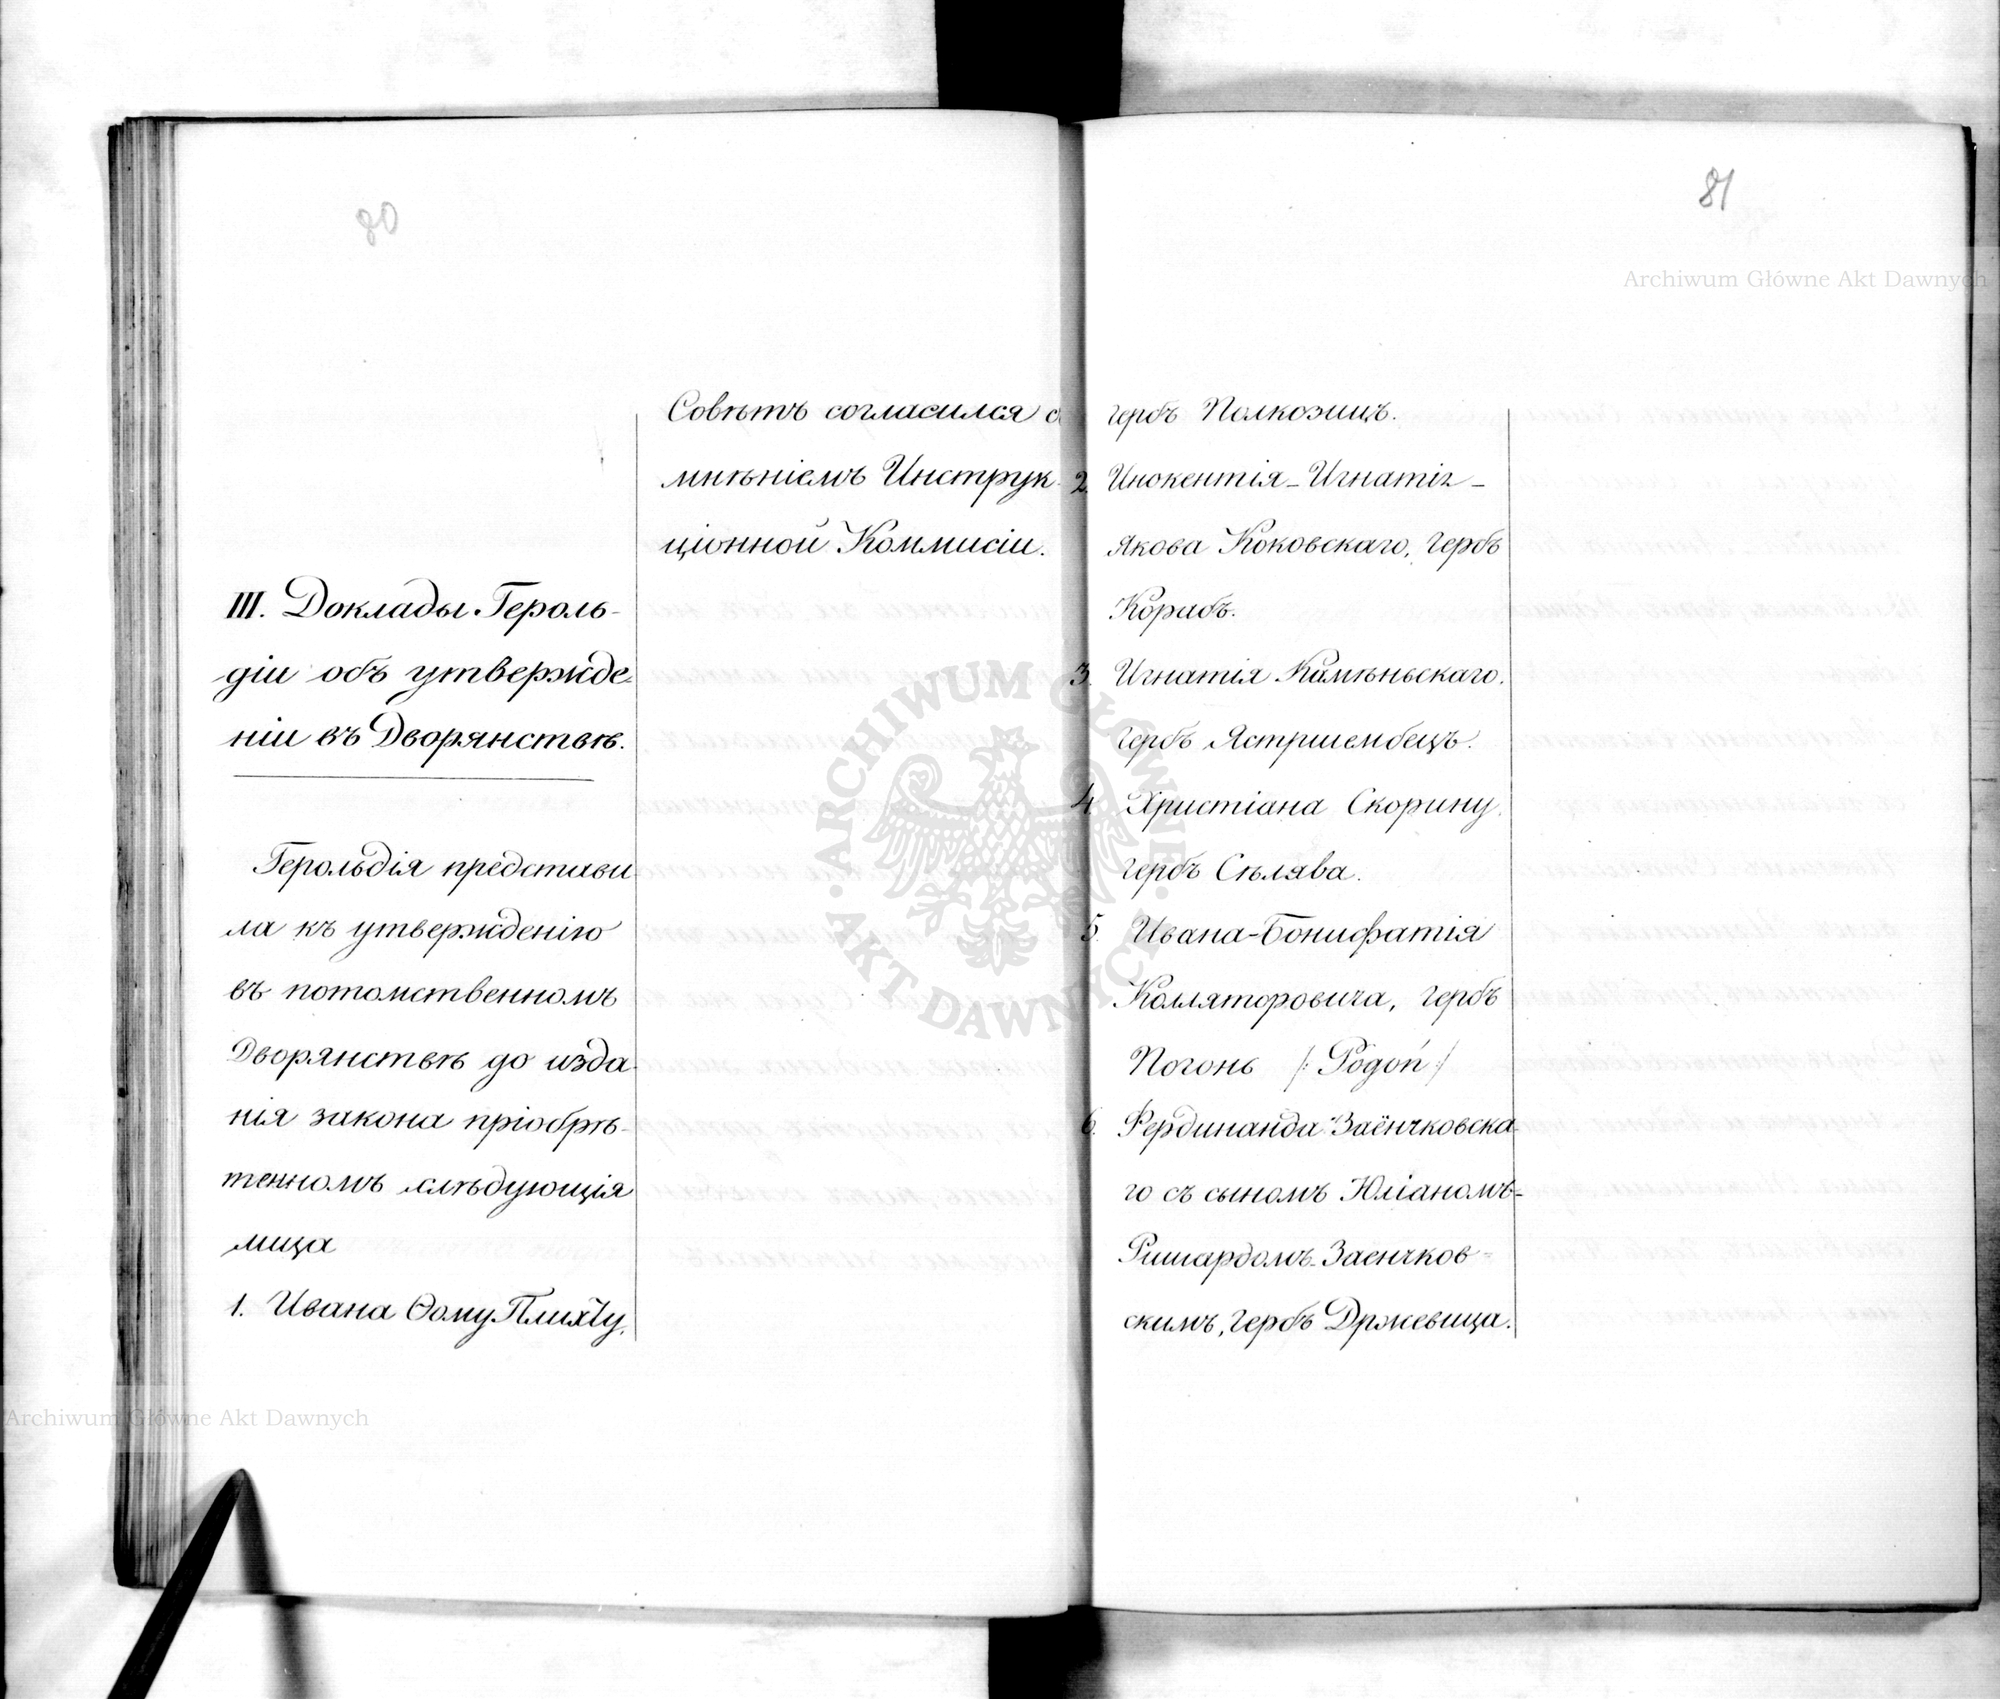 80
Совѣтъ согласился съ
мнѣніемъ Инструк-
ціонной Коммисіи.
III. Доклады Героль-
діи объ утвержде-
ніи въ Дворянствѣ.
Герольдія представи-
ла къ утвержденію
въ потомственномъ
Дворянствѣ до изда-
нія закона пріобрѣ-
тенномъ слѣдующія
лица
1. Ивана Ѳому Плихту,
81
Archiwum Główne Akt Dawnych
гербъ Полкозицъ.
2. Инокентія-Игнатія-
Якова Коковскаго, гербъ
Корабъ.
3. Игнатія Камѣньскаго.
гербъ Ястршембецъ.
4. Христіана Скорину
гербъ Сѣлява.
5. Ивана-Бонифатія
Колляторовича, гербъ
Погонь /: Pogoń :/
6. Фердинанда Заёнчковска-
го съ сыномъ Юліаномъ-
Ришардомъ Заенчков-
скимъ, гербъ Држевица.
ARCHIWUM GŁÓWNE AKT DAWNYCH
Archiwum Główne Akt Dawnych